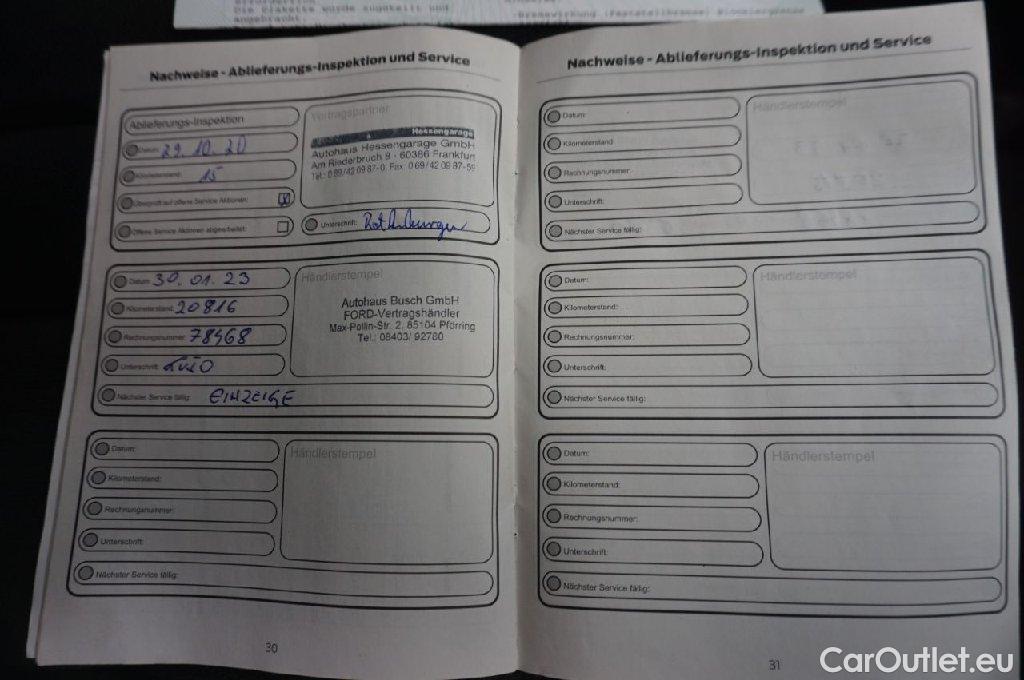 Die Plakette wurde zugeteilt und
angebracht.
Nachweise - Ablieferungs-Inspektion und Service
Ablieferungs-Inspektion
Datum: 29.10.20
Kilometerstand: 15
Überprüft auf offene Service Aktionen: X
Offene Service Aktionen abgearbeitet:
Vertragspartner
Hessengarage
Autohaus Hessengarage GmbH
Am Riederbruch 9 - 60386 Frankfurt
Tel.: 069/42 09 87-0, Fax: 069/42 09 87-59
Unterschrift:
Datum: 30.01.23
Kilometerstand: 20816
Rechnungsnummer: 78468
Unterschrift:
Nächster Service fällig: EINZEIGE
Händlerstempel
Autohaus Busch GmbH
FORD-Vertragshändler
Max-Pollin-Str. 2, 85104 Pförring
Tel.: 08403/ 92780
Datum:
Kilometerstand:
Rechnungsnummer:
Unterschrift:
Nächster Service fällig:
Händlerstempel
30
Nachweise - Ablieferungs-Inspektion und Service
Datum:
Kilometerstand:
Rechnungsnummer:
Unterschrift:
Nächster Service fällig:
Händlerstempel
Datum:
Kilometerstand:
Rechnungsnummer:
Unterschrift:
Nächster Service fällig:
Händlerstempel
Datum:
Kilometerstand:
Rechnungsnummer:
Unterschrift:
Nächster Service fällig:
Händlerstempel
31
CarOutlet.eu